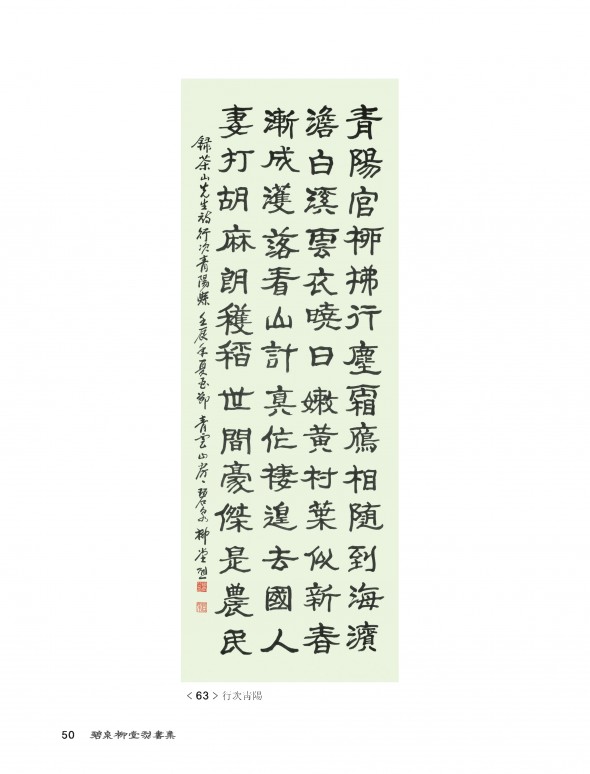 青陽官栁拂行塵霜鴈相隨到海濱
澹白溪雲衣曉日嫩黄村葉似新春
漸成濩落看山計真作棲遑去國人
妻打胡麻朗穫稻世間豪傑是農民
録茶山先生詩行次青陽縣 壬辰年夏至節 青雲山房 碧泉 柳堂
< 63 > 行次靑陽
50 碧泉柳堂書集